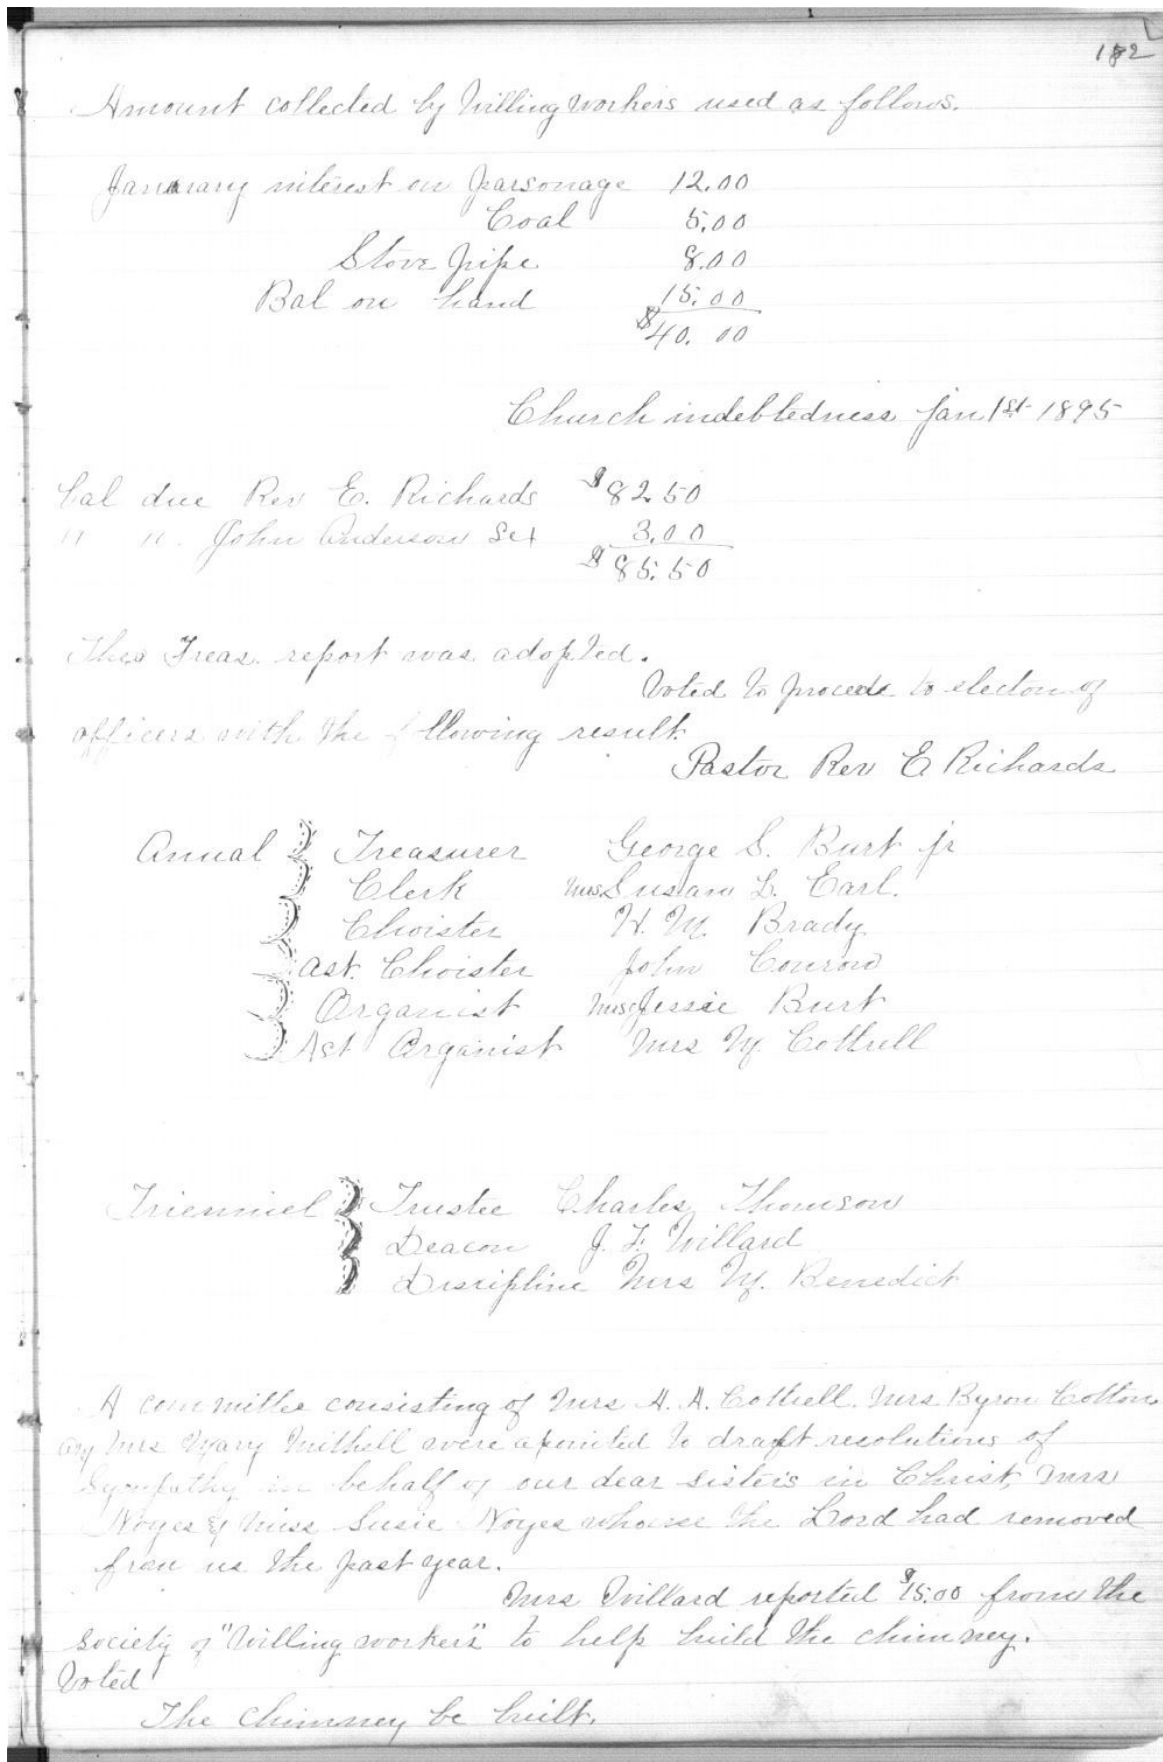 182
Amount collected by Willing Workers used as follows.
January interest on parsonage 12.00
Coal 5.00
Stove pipe 8.00
Bal on hand 15.00
$40.00
Church indebtedness Jan 1st 1895
bal due Rev E. Richards $82.50
" " John Anderson Sex 3.00
$85.50
The Treas. report was adopted.
Voted to procede to electon of
officers with the following result.
Pastor Rev E Richards
Annual Treasurer George S. Burt jr
Clerk Mrs Susan L. Earl.
Choister H. M. Brady
Ast. Choister John Conrow
Organist Mrs Jessie Burt
Ast Organist Mrs M. Cottrell
Trienniel Trustee Charles Thomson
Deacon J. F. Willard
Discipline Mrs M. Benedict
A committee consisting of Mrs A. A. Cottrell. Mrs Byron Cotton
Mrs Mary Mithell were aponited to draft resolutions of
Sympathy in behalf of our dear sisters in Christ, Mrs
Noyes & Miss Susie Noyes whome the Lord had removed
from us the past year.
Mrs Willard reported $15.00 from the
society of "Willing workers" to help build the chimney.
Voted
The chimney be built.